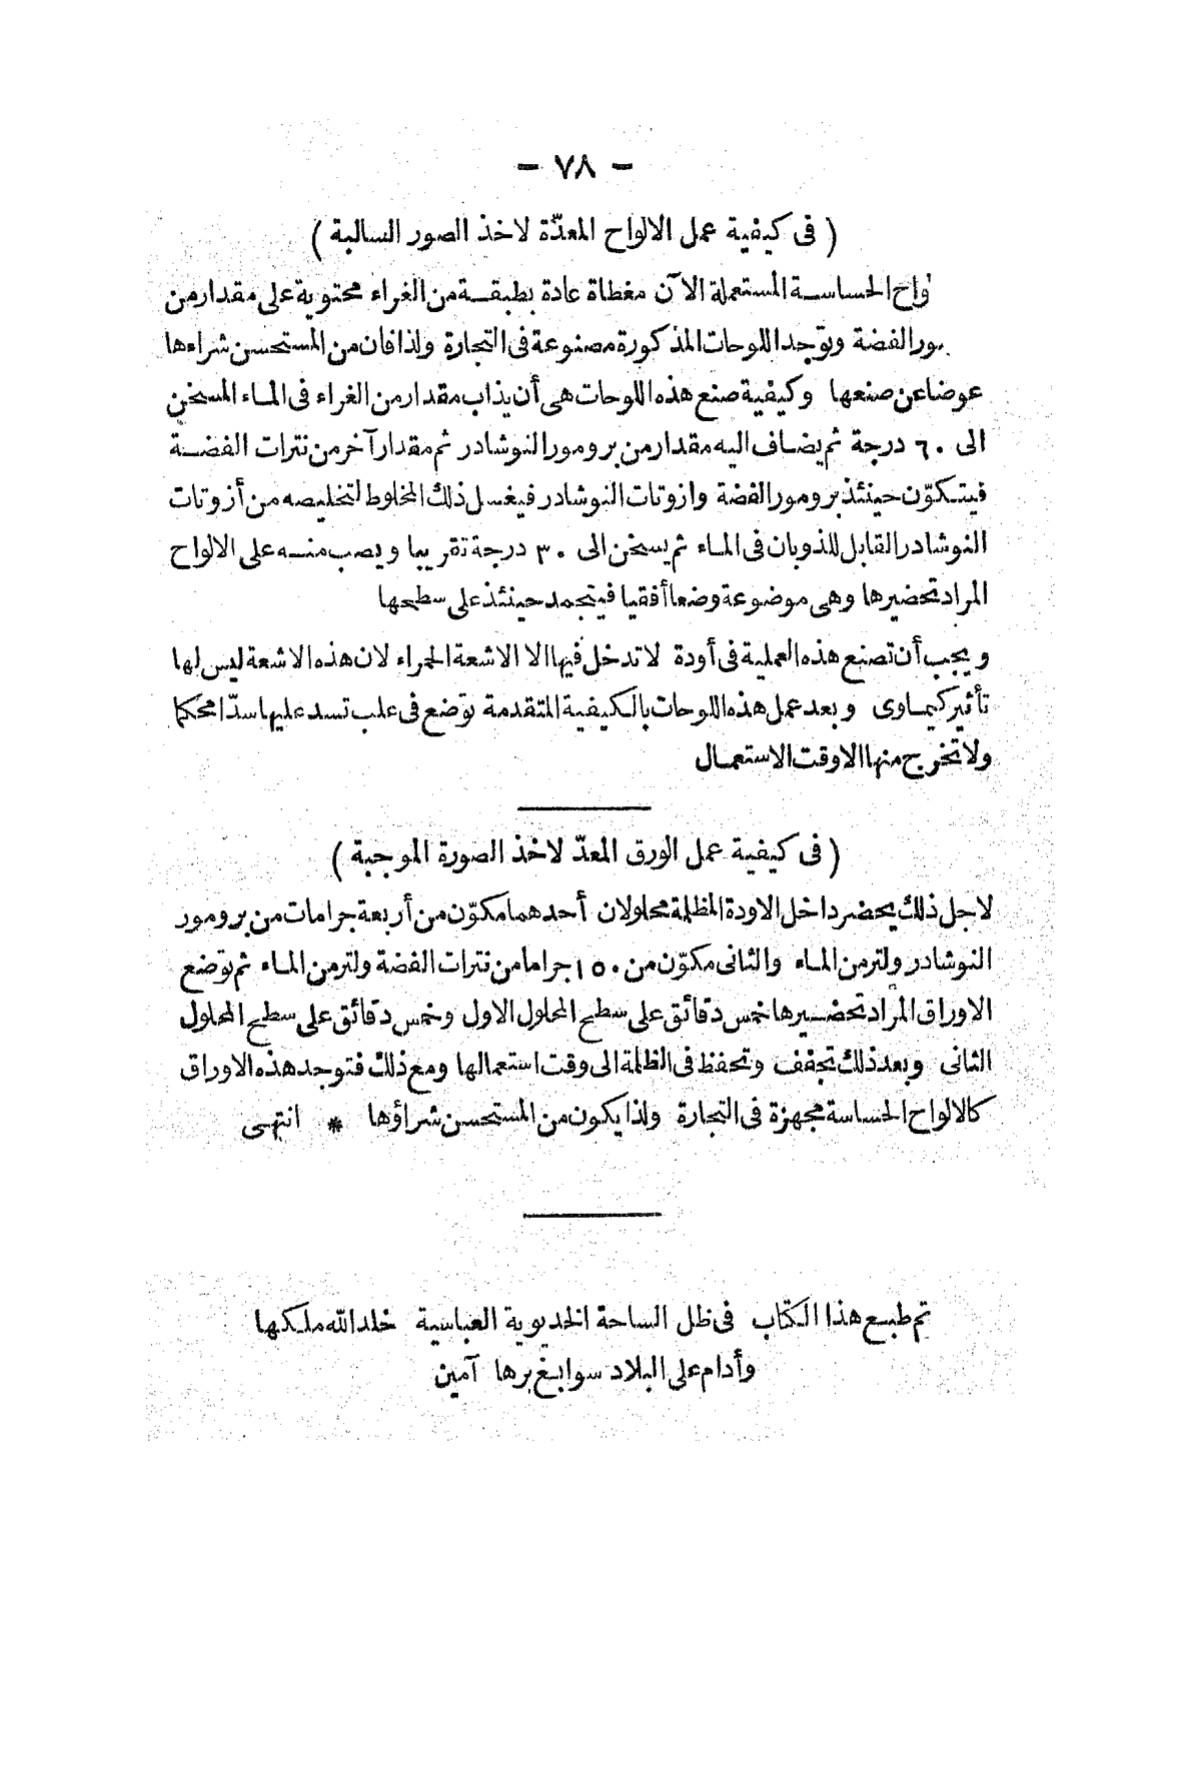 - ٧٨ -
( فى كيفية عمل الالواح المعدّة لاخذ الصور السالبة )
الحساسة المستعملة الآن مغطاة عادة بطبقة من الغراء محتوية على مقدار من
الفضة وتوجد اللوحات المذكورة مصنوعة فى التجارة ولذا فان من المستحسن شراءها
عوضا عن صنعها وكيفية صنع هذه اللوحات هى أن يذاب مقدار من الغراء فى الماء المسخن
الى ٦٠ درجة ثم يضاف اليه مقدار من برومور النوشادر ثم مقدار آخر من نترات الفضة
فيتكوّن حينئذ برومور الفضة وازوتات النوشادر فيغسل ذلك المخلوط لتخليصه من أزوتات
النوشادر القابل للذوبان فى الماء ثم يسخن الى ٣٠ درجة تقريبا ويصب منه على الالواح
المراد تحضيرها وهى موضوعة وضعا أفقيا فيتجمد حينئذ على سطحها
ويجب أن تصنع هذه العملية فى أودة لا تدخل فيها الا الاشعة الحمراء لان هذه الاشعة ليس لها
تأثير كيماوى وبعد عمل هذه اللوحات بالكيفية المتقدمة توضع فى علب تسد عليها سدّا محكما
ولا تخرج منها الا وقت الاستعمال
( فى كيفية عمل الورق المعدّ لاخذ الصورة الموجبة )
لاجل ذلك يحضر داخل الاودة المظلمة محلولان أحدهما مكوّن من أربعة جرامات من برومور
النوشادر ولتر من الماء والثانى مكوّن من ١٥٠ جراما من نترات الفضة ولتر من الماء ثم توضع
الاوراق المراد تحضيرها خمس دقائق على سطح المحلول الاول وخمس دقائق على سطح المحلول
الثانى وبعد ذلك تجفف وتحفظ فى الظلمة الى وقت استعمالها ومع ذلك فتوجد هذه الاوراق
كالالواح الحساسة مجهزة فى التجارة ولذا يكون من المستحسن شراؤها * انتهى
تم طبع هذا الكتاب فى ظل الساحة الخديوية العباسية خلد الله ملكها
وأدام على البلاد سوابغ برها آمين